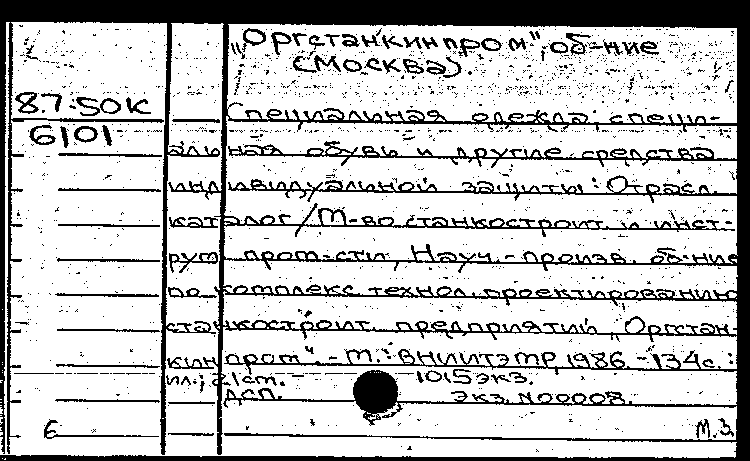 „Оргстанкинпром", об-ние
(Москва).
87-50К
6101
Специальная одежда, специ-
альная обувь и другие средства
индивидуальной защиты: Отрасл.
каталог / М-во станкостроит. и инст-
рум. пром-сти, Науч.-произв. об-ние
по комплекс. технол. проектированию
станкостроит. предприятий „Оргстан-
кинпром". - М.: ВНИИТЭМР, 1986. - 134с.:
ил.; 21см. - 1015экз.
ДСП. Экз. N00008.
6 М.З.